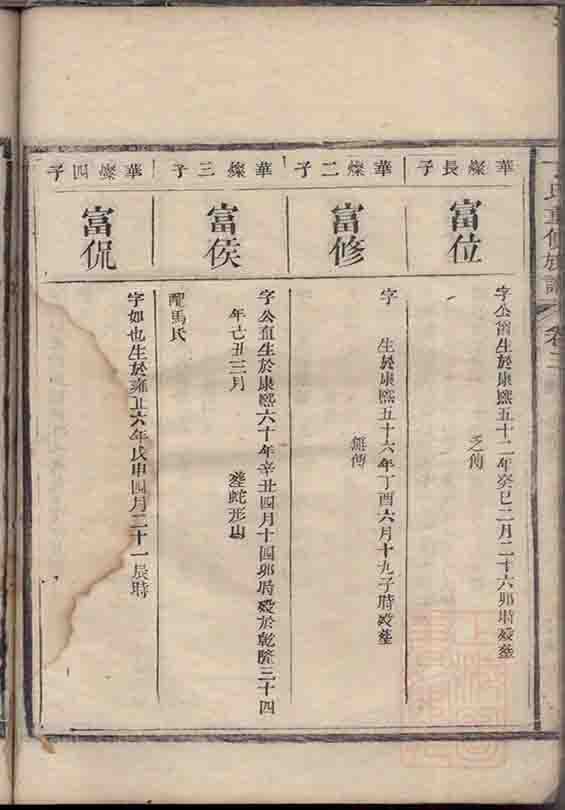 氏重修族譜 卷二
華燦長子
富位
字公 生於康熙五十二年癸巳二月二十六卯時歿塟
乏傳
華燦二子
富修
字 生於康熙五十六年丁酉六月十九子時歿塟
無傳
華燦三子
富侯
字公直生於康熙六十年辛丑四月十四卯時歿於乾隆三十四
年己丑三月 塟蛇形山
配馬氏
華燦四子
富侃
字如也生於雍正六年戊申四月二十一辰時